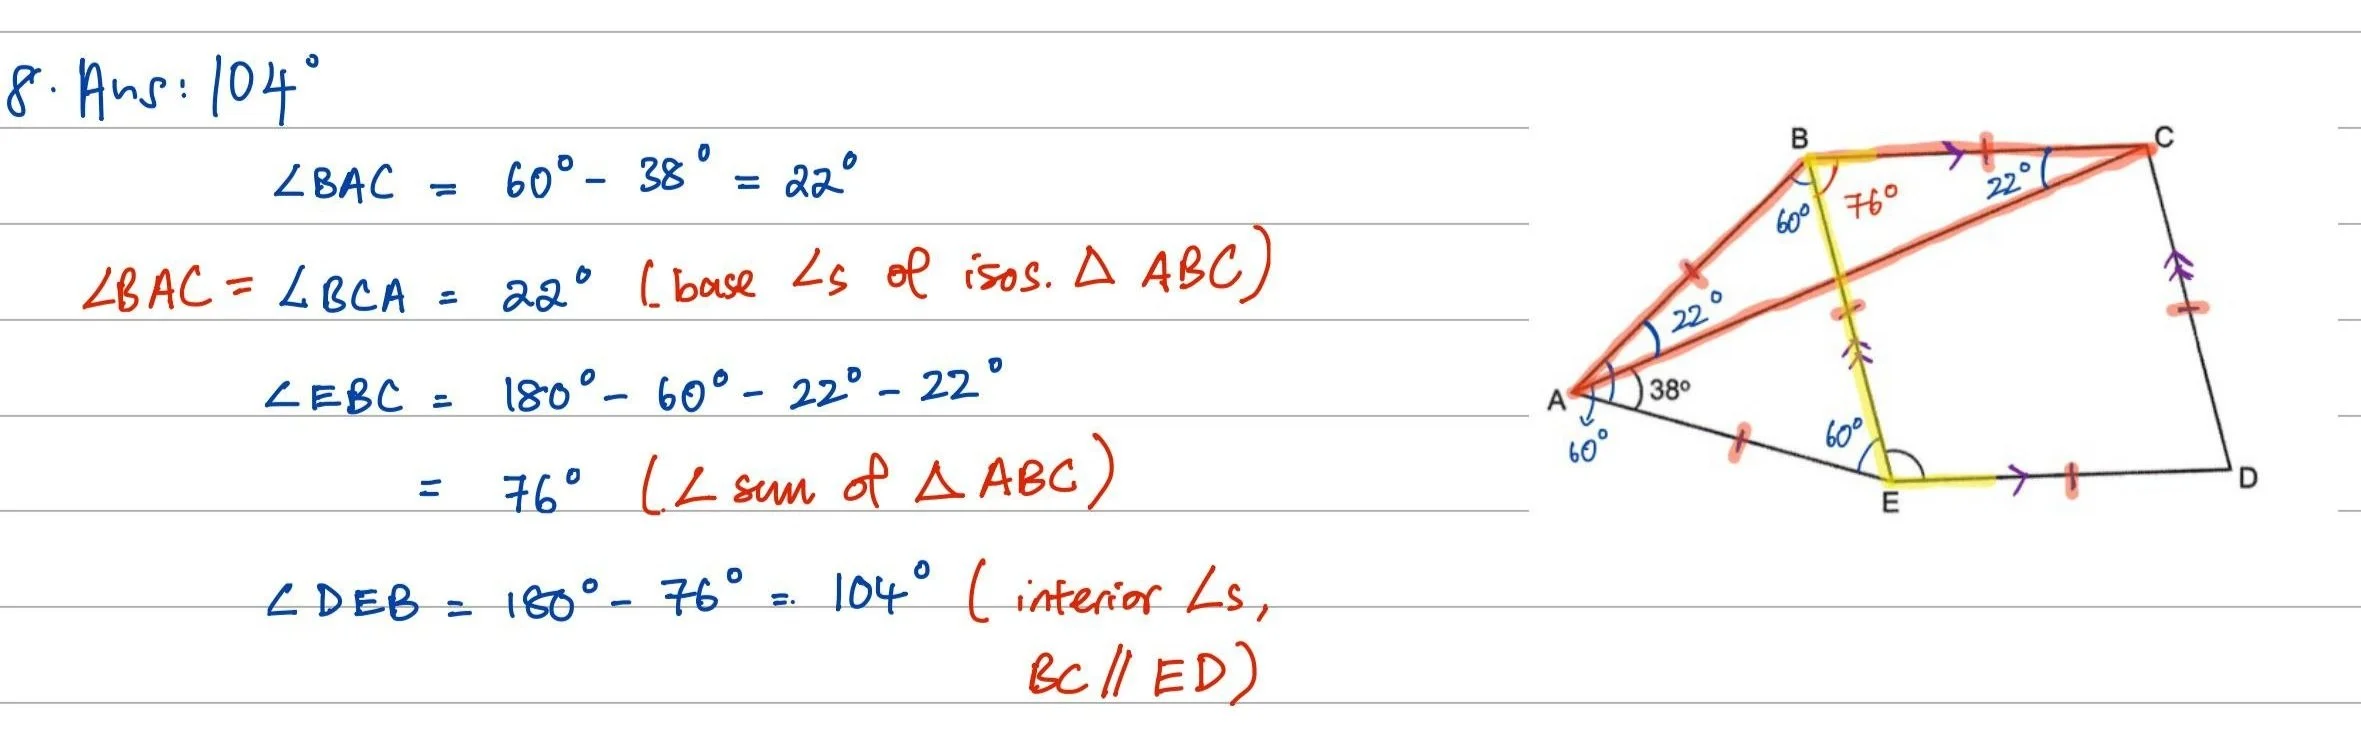 8. Ans: 104°
∠BAC = 60° - 38° = 22°
∠BAC = ∠BCA = 22° (base ∠s of isos. △ ABC)
∠EBC = 180° - 60° - 22° - 22°
= 76° (∠ sum of △ ABC)
∠DEB = 180° - 76° = 104° (interior ∠s,
BC // ED)
B
C
60°
76°
22°
22°
A
38°
60°
60°
E
D